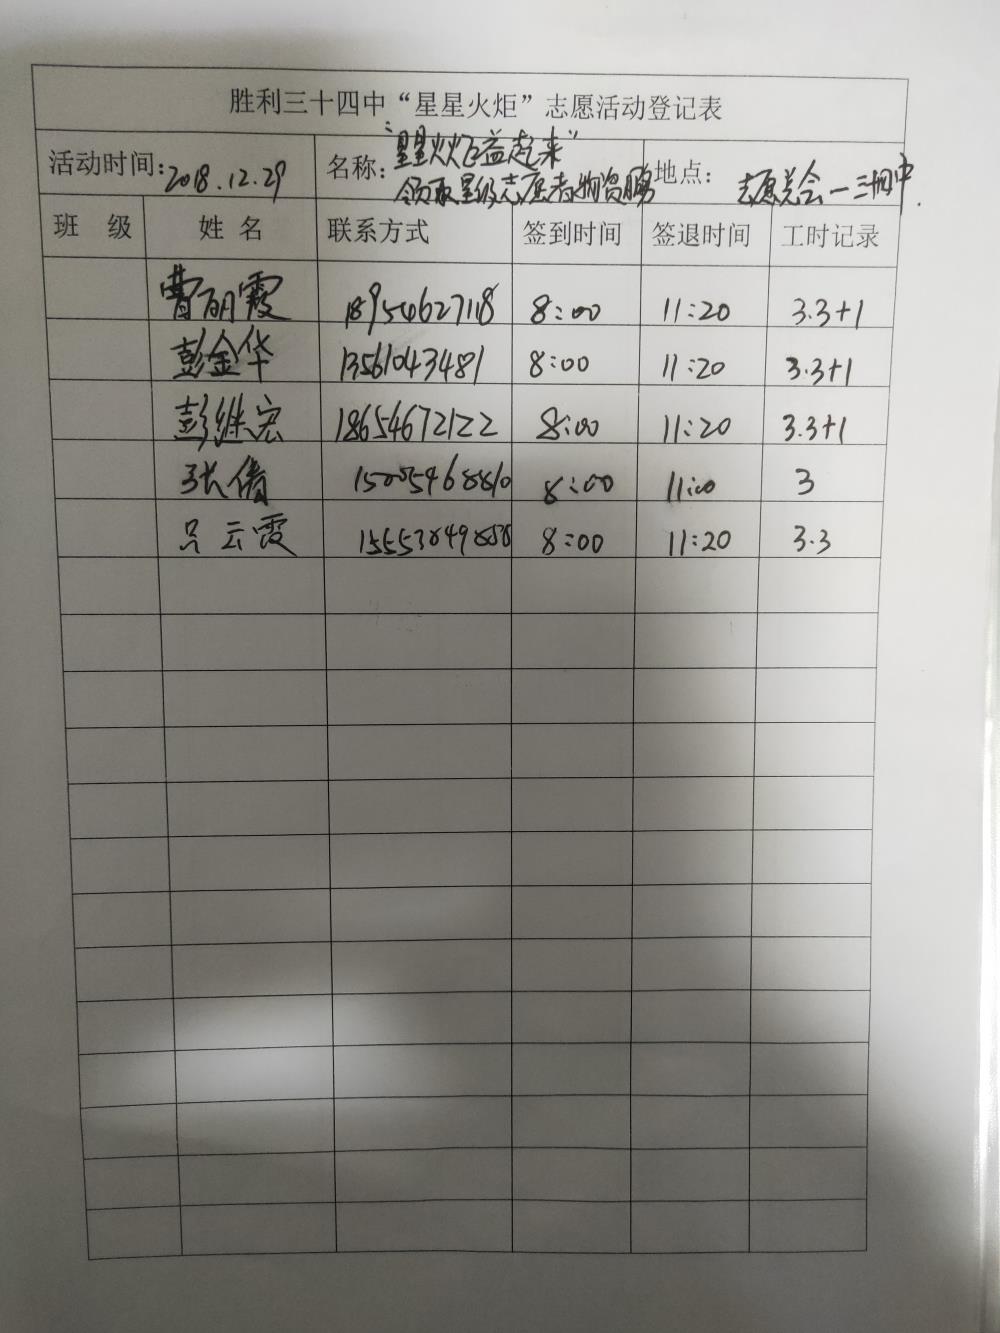 胜利三十四中“星星火炬”志愿活动登记表
活动时间:2018.12.29 名称:“星星火炬益起来” 地点:志愿总会一三十四中.
领取星级志愿者物资
班 级 姓 名 联系方式 签到时间 签退时间 工时记录
曹丽霞 18954627118 8:00 11:20 3.3+1
彭金华 13561043481 8:00 11:20 3.3+1
彭继宏 18654672122 8:00 11:20 3.3+1
张倩 15005468810 8:00 11:00 3
吕云霞 8:00 11:20 3.3